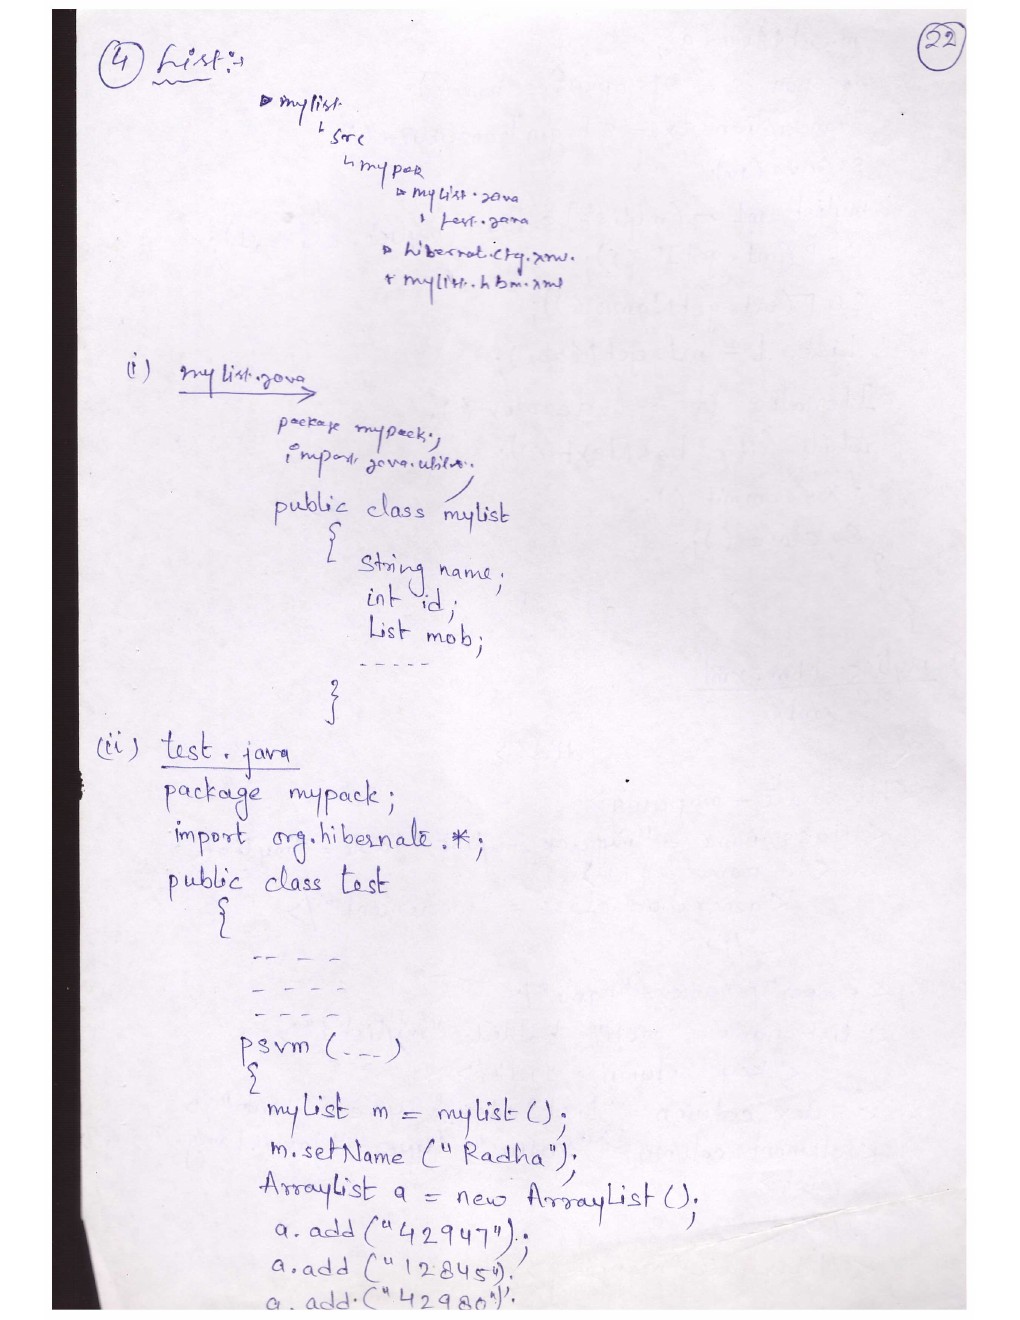 22
4 List:→
mylist
↳ src
↳ mypack
mylist.java
test.java
hibernat.cfg.xml.
mylist.hbm.xml
(i) mylist.java
package mypack;
import java.util.*;
public class mylist
{
String name;
int id;
List mob;
-----
}
(ii) test.java
package mypack;
import org.hibernate.*;
public class test
{
-- - -
- - - -
- - - -
psvm (---)
{
mylist m = mylist();
m.setName ("Radha");
ArrayList a = new ArrayList();
a.add ("42947");
a.add ("12845").
a. add.("42980").